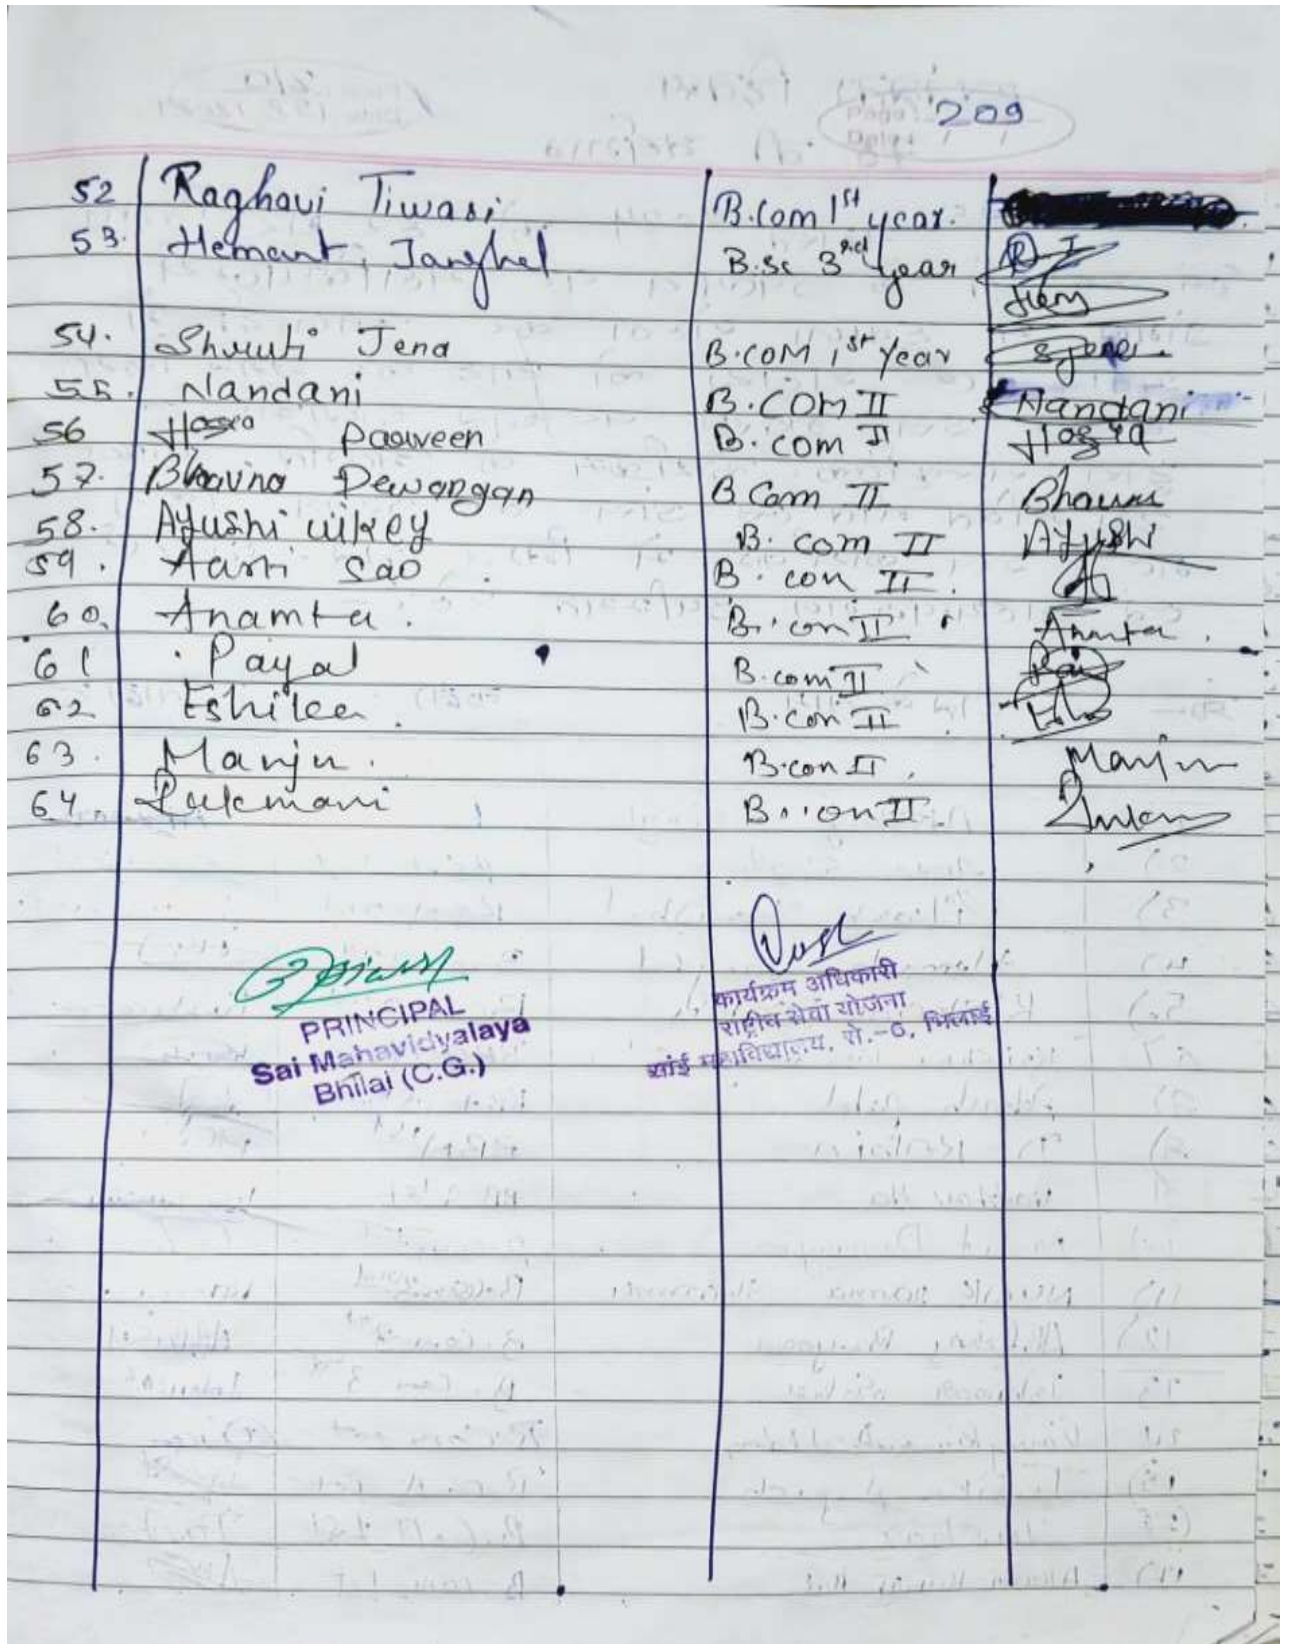 209
52 Raghavi Tiwari B.Com 1st year.
53. Hemant Janghel B.Sc 3rd year
54. Shruti Jena B.COM 1st Year
55. Nandani B.COM II Nandani
56 Parveen B.com II
57. Bhavina Dewangan B Com II
58. Ayushi uikey B.com II Ayushi
59. Aarti Sao B.con II.
60. Anamta. B.con II Anamta.
61 Payal B.com II
62 Eshika. B.con II
63. Manju. B.con II. Manju
64. Rukmani B.con II
PRINCIPAL
Sai Mahavidyalaya
Bhilai (C.G.)
कार्यक्रम अधिकारी
राष्ट्रीय सेवा योजना
सांई महाविद्यालय, से.-6, भिलाई